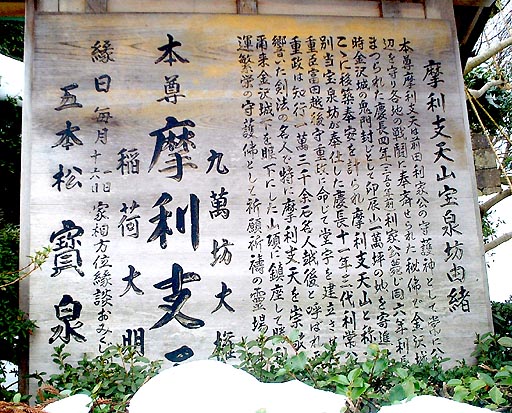 摩利支天山宝泉坊由緒
本尊摩利支天は前田利家公の守護神として常に
辺を守り各地の戦闘に奉斉せられた秘佛で金沢城
まつられた慶長四年三百年前利家公薨じ同六年利
時金沢城の鬼門封じとして卯辰山一萬坪の地を寄進
ここに移築奉安を計られ摩利支天山と称
別当宝泉坊が奉仕した慶長十一年三代利常公
重臣富田越後守重政に命じて堂宇を建立させ
重政は知行一萬三千余石名人越後と呼ばれ
響いた剣法の名人で特に摩利支天を崇敬
爾来金沢城下を眼下にした山頭に鎮座して勝利
運繁栄の守護佛として祈願祈祷の霊場
九萬坊大権
本尊 摩利支天
稲荷大明
縁日 毎月 一日 十六日 家相方位縁談おみくじ
五本松 寶泉